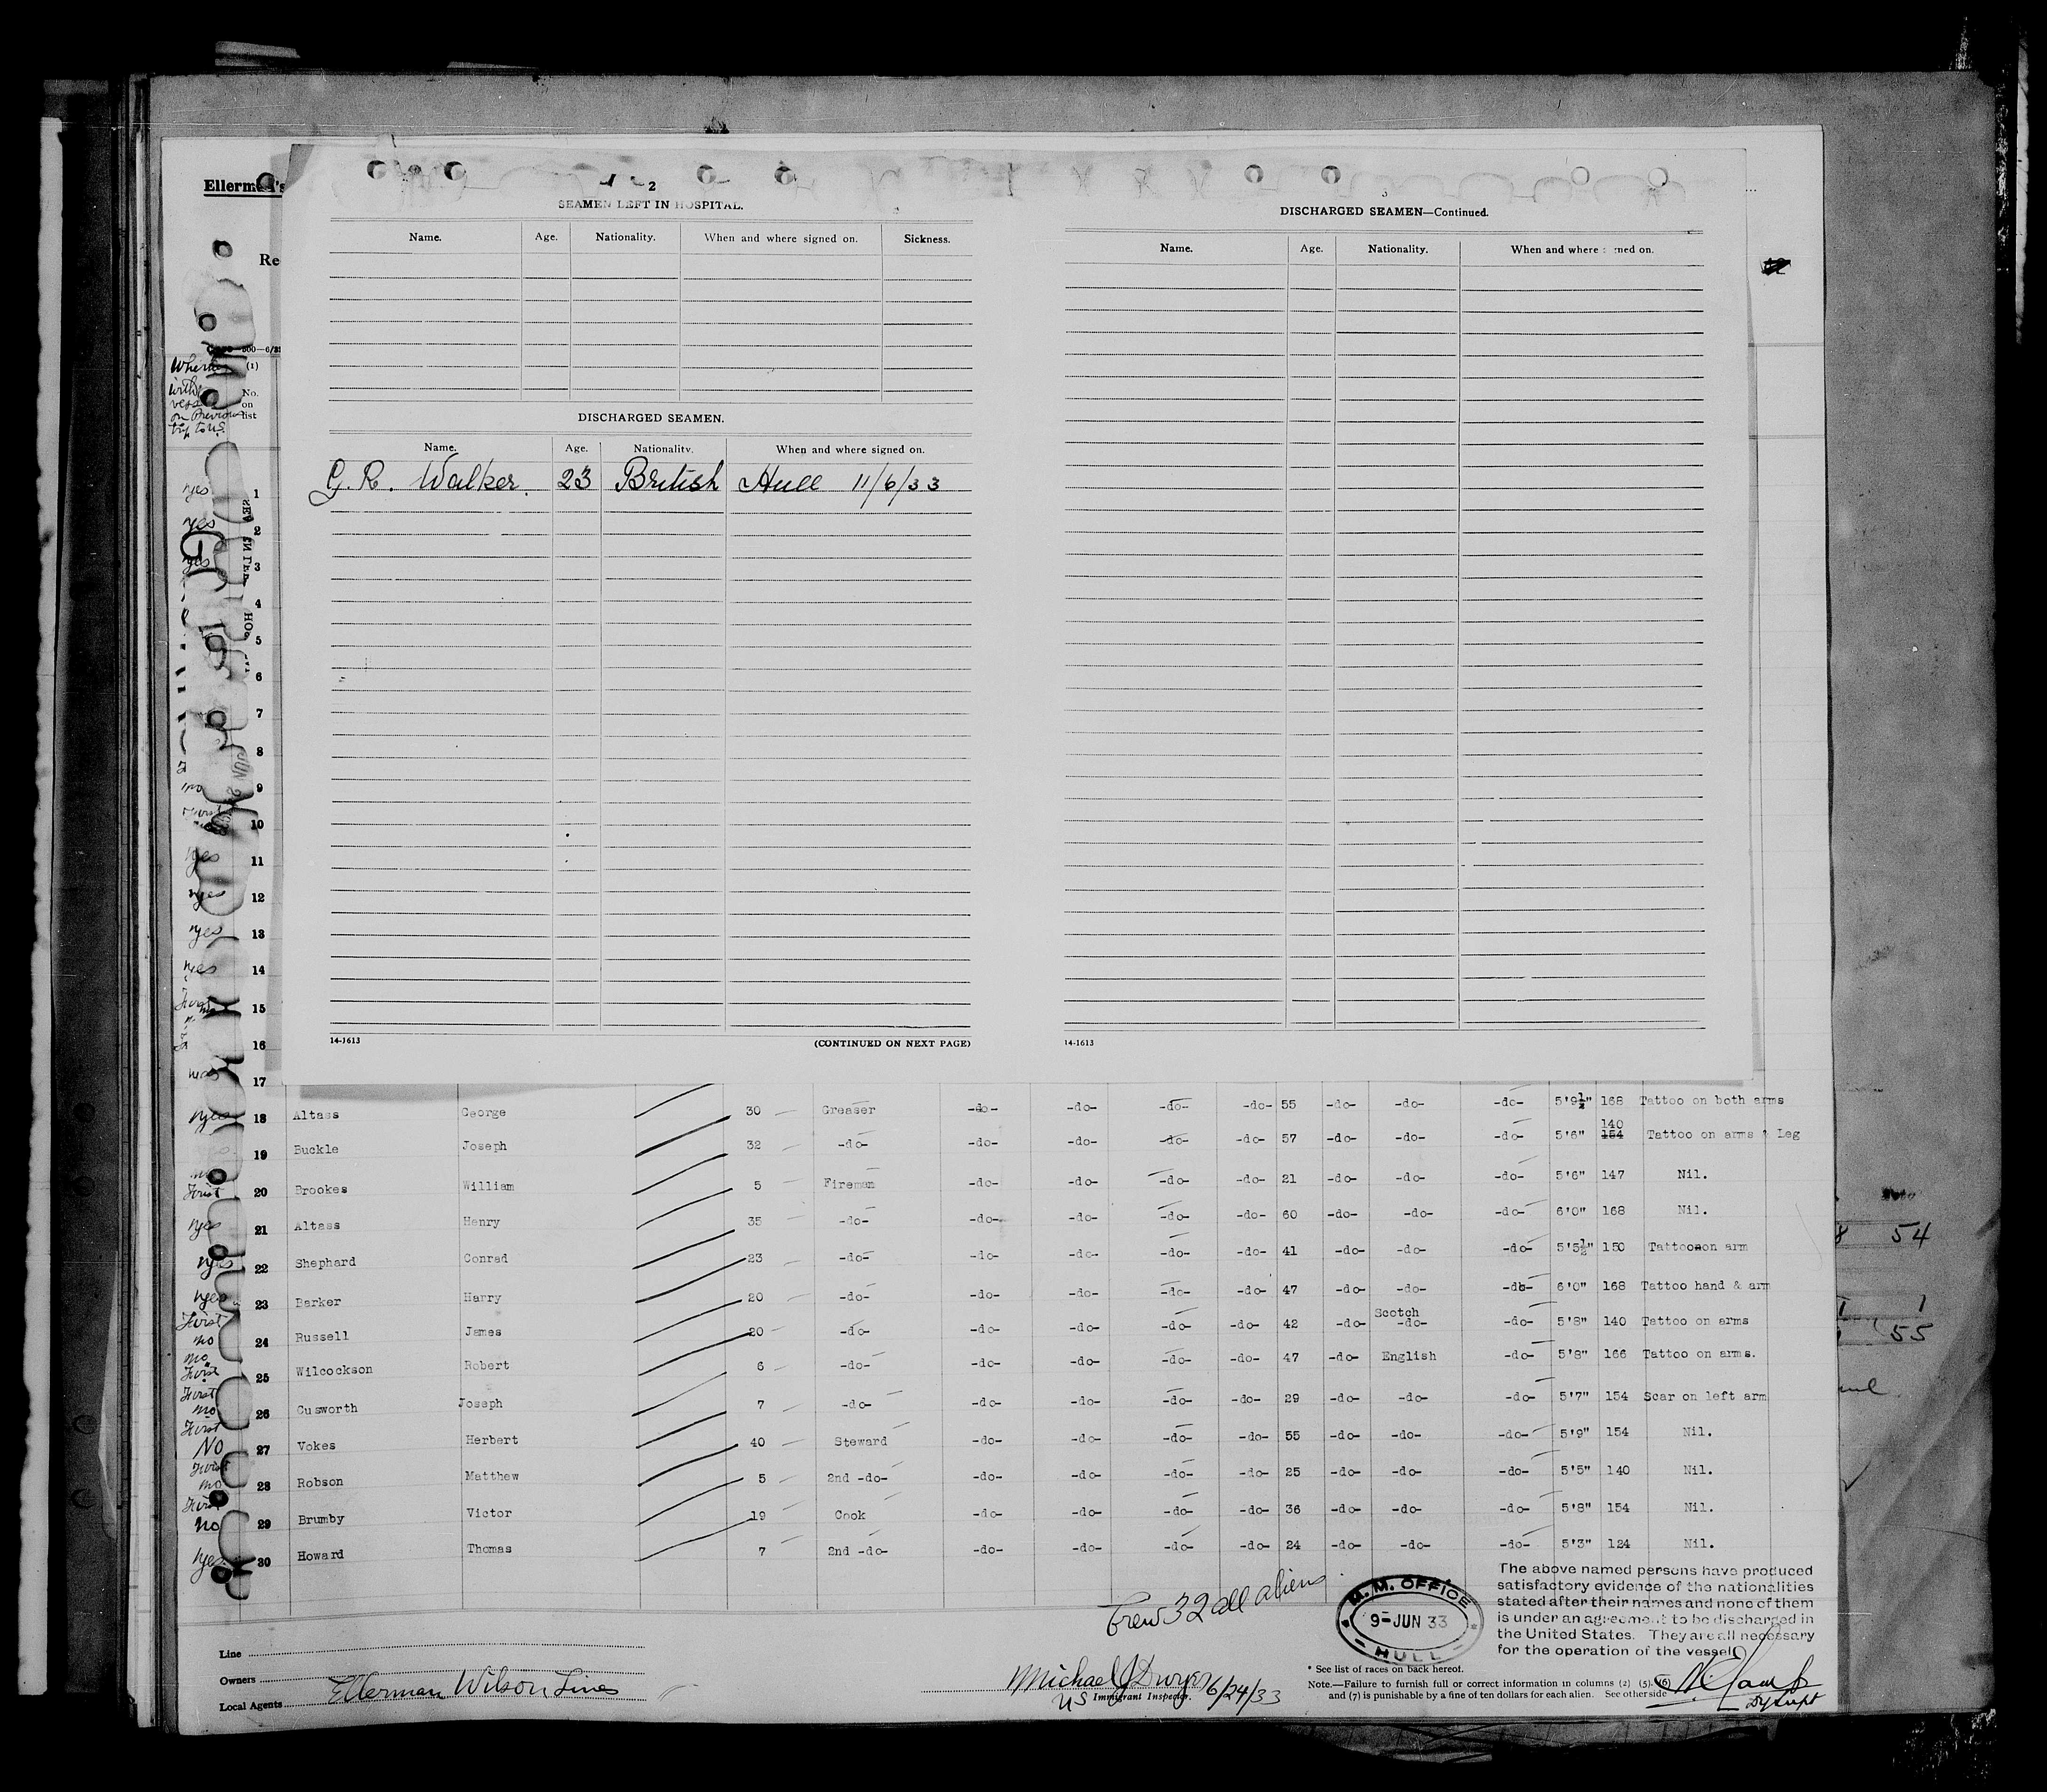 Ellerman's
2
SEAMEN LEFT IN HOSPITAL.
Name. Age. Nationality. When and where signed on. Sickness.
DISCHARGED SEAMEN.
Name. Age. Nationality. When and where signed on.
G. R. Walker. 23 British Hull 11/6/33
14-1613 (CONTINUED ON NEXT PAGE)
3
DISCHARGED SEAMEN—Continued.
Name. Age. Nationality. When and where signed on.
14-1613
Re
(1)
No. on list
yes 1
yes 2
yes 3
4
5
6
7
8
no 9
10
yes 11
yes 12
yes 13
yes 14
First 15
16
17
yes 18 Altass George 30 Greaser -do- -do- -do- -do- 55 -do- -do- -do- 5'9½" 168 Tattoo on both arms
19 Buckle Joseph 32 -do- -do- -do- -do- -do- 57 -do- -do- -do- 5'6" 154 140 Tattoo on arms & Leg
no First 20 Brookes William 5 Fireman -do- -do- -do- -do- 21 -do- -do- -do- 5'6" 147 Nil.
yes 21 Altass Henry 35 -do- -do- -do- -do- -do- 60 -do- -do- -do- 6'0" 168 Nil.
yes 22 Shephard Conrad 23 -do- -do- -do- -do- -do- 41 -do- -do- -do- 5'5½" 150 Tattooon arm
yes 23 Barker Harry 20 -do- -do- -do- -do- -do- 47 -do- -do- -do- 6'0" 168 Tattoo hand & arm
First no 24 Russell James 20 -do- -do- -do- -do- -do- 42 -do- Scotch -do- -do- 5'8" 140 Tattoo on arms
no First 25 Wilcockson Robert 6 -do- -do- -do- -do- -do- 47 -do- English -do- 5'8" 166 Tattoo on arms.
First no 26 Cusworth Joseph 7 -do- -do- -do- -do- -do- 29 -do- -do- -do- 5'7" 154 Scar on left arm
First No 27 Vokes Herbert 40 Steward -do- -do- -do- -do- 55 -do- -do- -do- 5'9" 154 Nil.
First no 28 Robson Matthew 5 2nd -do- -do- -do- -do- -do- 25 -do- -do- -do- 5'5" 140 Nil.
First no 29 Brumby Victor 19 Cook -do- -do- -do- -do- 36 -do- -do- -do- 5'8" 154 Nil.
yes 30 Howard Thomas 7 2nd -do- -do- -do- -do- -do- 24 -do- -do- -do- 5'3" 124 Nil.
54
1
55
Crew 32 all aliens
M.M. OFFICE
9-JUN 33
HULL
The above named persons have produced
satisfactory evidence of the nationalities
stated after their names and none of them
is under an agreement to be discharged in
the United States. They are all necessary
for the operation of the vessel
Line
Owners
Local Agents Ellerman Wilson Lines
Michael J Dwyer 6/24/33
US Immigrant Inspector.
* See list of races on back hereof.
Note.—Failure to furnish full or correct information in columns (2) (5) (6)
and (7) is punishable by a fine of ten dollars for each alien. See other side
Dy Supt